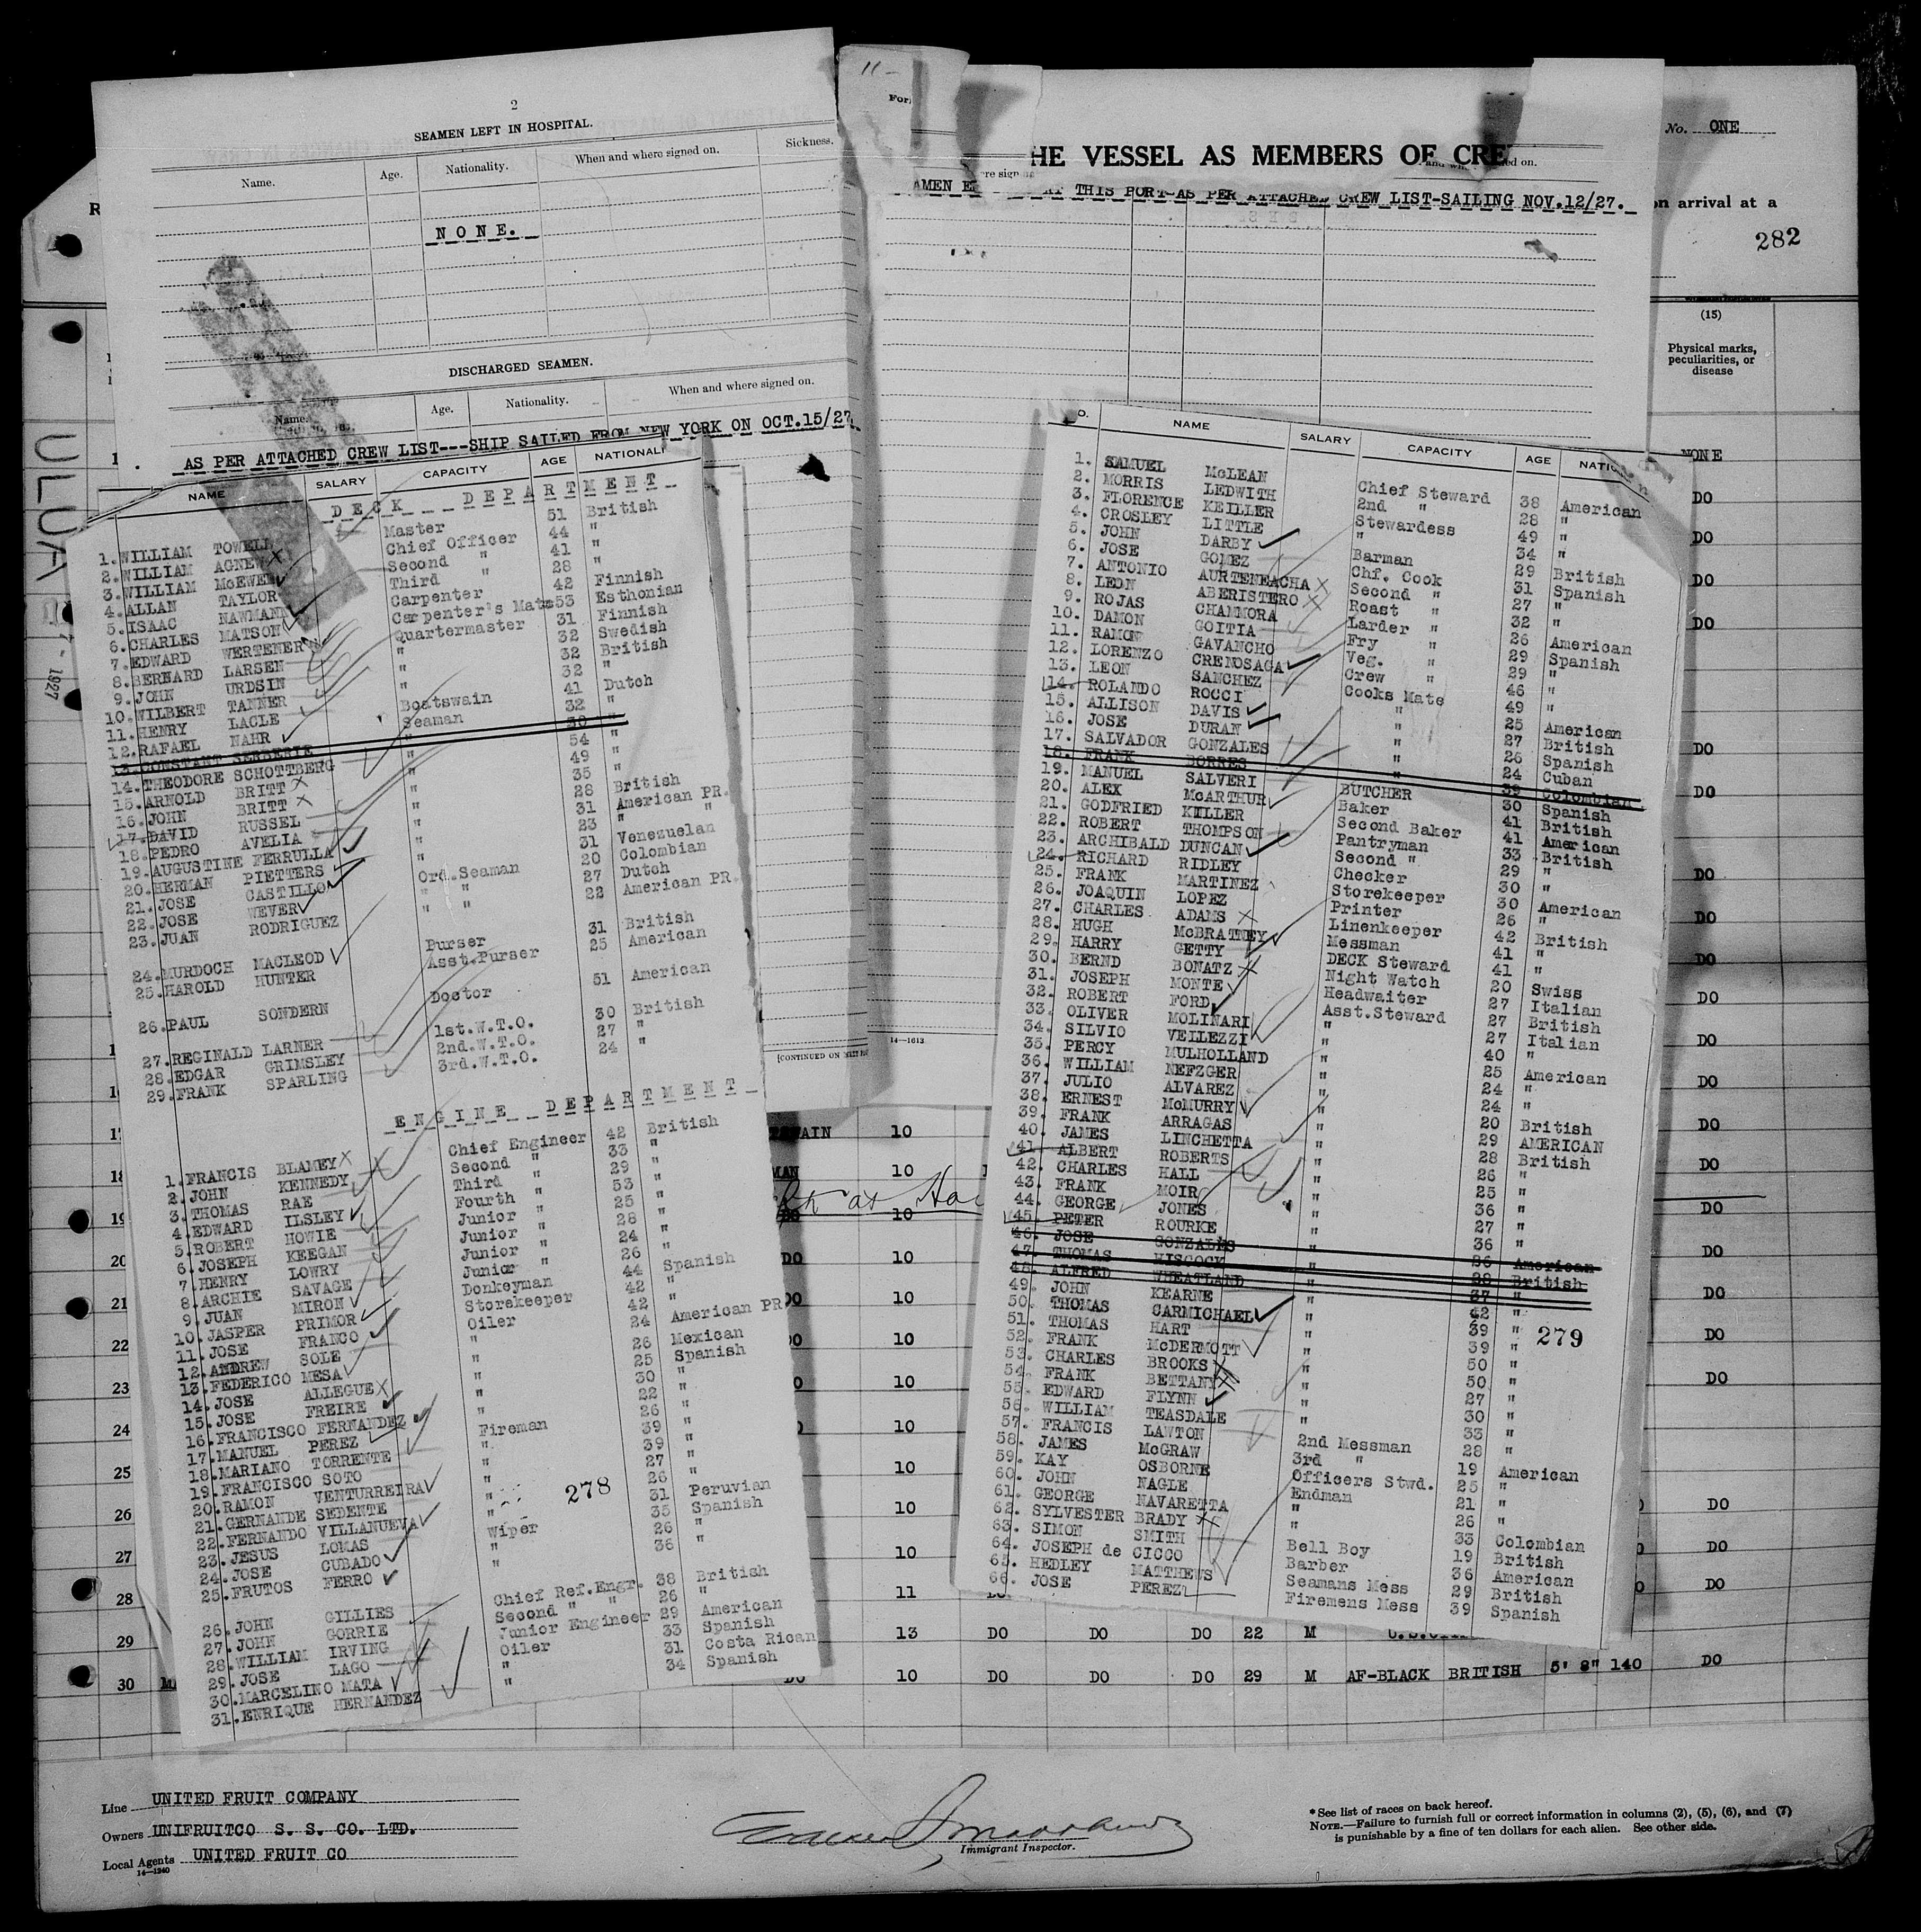 2
SEAMEN LEFT IN HOSPITAL.
Name. Age. Nationality. When and where signed on. Sickness.
NONE.
DISCHARGED SEAMEN.
Name. Age. Nationality. When and where signed on.
AS PER ATTACHED CREW LIST---SHIP SAILED FROM NEW YORK ON OCT.15/27
NAME SALARY CAPACITY AGE NATIONALI
DECK DEPARTMENT
1. WILLIAM TOWELL Master 51 British
2. WILLIAM AGNEW Chief Officer 44 "
3. WILLIAM McEWEN Second " 41 "
4. ALLAN TAYLOR Third " 28 "
5. ISAAC NAWMANN Carpenter 42 Finnish
6. CHARLES MATSON Carpenter's Mate 53 Esthonian
7. EDWARD WERTENER Quartermaster 31 Finnish
8. BERNARD LARSEN " 32 Swedish
9. JOHN URDSIN " 32 British
10. WILBERT TANNER " 32 "
11. HENRY LACLE Boatswain 41 Dutch
12. RAFAEL NAHR Seaman 32 "
13. CONSTANT SERBERIE " 30 "
14. THEODORE SCHOTTBERG " 54 "
15. ARNOLD BRITT " 49 "
16. JOHN BRITT " 35 "
17. DAVID RUSSEL " 28 British
18. PEDRO AVELIA " 31 American PR.
19. AUGUSTINE FERRULLA " 23 " "
20. HERMAN PIETTERS " 31 Venezuelan
21. JOSE CASTILLO Ord.Seaman 20 Colombian
22. JOSE WEVER " " 27 Dutch
23. JUAN RODRIGUEZ " " 22 American PR.
24. MURDOCH MACLEOD Purser 31 British
25. HAROLD HUNTER Asst.Purser 25 American
26. PAUL SONDERN Doctor 51 American
27. REGINALD LARNER 1st.W.T.O. 30 British
28. EDGAR GRIMSLEY 2nd.W.T.O. 27 "
29. FRANK SPARLING 3rd.W.T.O. 24 "
ENGINE DEPARTMENT
1. FRANCIS BLAMEY Chief Engineer 42 British
2. JOHN KENNEDY Second " 33 "
3. THOMAS RAE Third " 29 "
4. EDWARD ILSLEY Fourth " 53 "
5. ROBERT HOWIE Junior " 25 "
6. JOSEPH KEEGAN Junior " 28 "
7. HENRY LOWRY Junior " 24 "
8. ARCHIE SAVAGE Junior " 26 "
9. JUAN MIRON Donkeyman 44 Spanish
10. JASPER PRIMOR Storekeeper 42 "
11. JOSE FRANCO Oiler 24 American PR
12. ANDREW SOLE " 26 Mexican
13. FEDERICO MESA " 25 Spanish
14. JOSE ALLEGUE " 30 "
15. JOSE FREIRE " 22 "
16. FRANCISCO FERNANDEZ Fireman 26 "
17. MANUEL PEREZ " 39 "
18. MARIANO TORRENTE " 39 "
19. FRANCISCO SOTO " 27 "
20. RAMON VENTURREIRA " 26 "
21. GERNANDE SEDENTE " 31 Peruvian
22. FERNANDO VILLANUEVA " 35 Spanish
23. JESUS LOMAS Wiper 26 "
24. JOSE CUBADO " 36 "
25. FRUTOS FERRO "
278
26. JOHN GILLIES Chief Ref.Engr. 38 British
27. JOHN GORRIE Second " " 26 "
28. WILLIAM IRVING Junior Engineer 29 American
29. JOSE LAGO Oiler 33 Spanish
30. MARCELINO MATA " 31 Costa Rican
31. ENRIQUE HERNANDEZ " 34 Spanish
11-
HE VESSEL AS MEMBERS OF CRE
No. ONE
AT THIS PORT-AS PER ATTACHED CREW LIST-SAILING NOV.12/27.
on arrival at a
282
(15)
Physical marks, peculiarities, or disease
ULUA
1927
NO. NAME SALARY CAPACITY AGE NATIO
1. SAMUEL McLEAN Chief Steward 38 American
2. MORRIS LEDWITH 2nd " 28 "
3. FLORENCE KEILLER Stewardess 49 "
4. CROSLEY LITTLE " 34 "
5. JOHN DARBY Barman 29 British
6. JOSE GOMEZ Chf. Cook 31 Spanish
7. ANTONIO AURTENEACHA Second " 27 "
8. LEON ABERISTERO Roast " 32 "
9. ROJAS CHAMMORA Larder " 26 American
10. DAMON GOITIA Fry " 29 Spanish
11. RAMON GAVANCHO Veg. " 29 "
12. LORENZO CRENOSAGA Crew " 46 "
13. LEON SANCHEZ Cooks Mate 49 "
14. ROLANDO ROCCI " 25 American
15. ALLISON DAVIS " 27 British
16. JOSE DURAN " 26 Spanish
17. SALVADOR GONZALES " 24 Cuban
18. FRANK BORRES " 39 Colombian
19. MANUEL SALVERI BUTCHER 30 Spanish
20. ALEX McARTHUR Baker 41 British
21. GODFRIED KELLER Second Baker 41 American
22. ROBERT THOMPSON Pantryman 33 British
23. ARCHIBALD DUNCAN Second " 29 "
24. RICHARD RIDLEY Checker 30 "
25. FRANK MARTINEZ Storekeeper 30 American
26. JOAQUIN LOPEZ Printer 26 "
27. CHARLES ADAMS Linenkeeper 42 British
28. HUGH McBRATNEY Messman 41 "
29. HARRY GETTY DECK Steward 41 "
30. BERND BONATZ Night Watch 20 Swiss
31. JOSEPH MONTE Headwaiter 27 Italian
32. ROBERT FORD Asst.Steward 27 British
33. OLIVER MOLINARI " 27 Italian
34. SILVIO VELLEZZI " 40 "
35. PERCY MULHOLLAND " 25 American
36. WILLIAM NEFZGER " 24 "
37. JULIO ALVAREZ " 24 "
38. ERNEST McMURRY " 20 British
39. FRANK ARRAGAS " 29 AMERICAN
40. JAMES LINCHETTA " 28 British
41. ALBERT ROBERTS " 26 "
42. CHARLES HALL " 25 "
43. FRANK MOIR " 36 "
44. GEORGE JONES " 27 "
45. PETER ROURKE " 36 "
46. JOSE GONZALES " 26 American
47. THOMAS HISCOCK " 28 British
48. ALFRED WHEATLAND " 37 "
49. JOHN KEARNE " 42 "
50. THOMAS CARMICHAEL " 39 "
51. THOMAS HART " 39 "
52. FRANK McDERMOTT " 50 "
53. CHARLES BROOKS " 50 "
54. FRANK BETTANY " 27 "
55. EDWARD FLYNN " 30 "
56. WILLIAM TEASDALE " 33 "
57. FRANCIS LAWTON 2nd Messman 28 "
58. JAMES McGRAW 3rd " 19 American
59. KAY OSBORNE Officers Stwd. 25 "
60. JOHN NAGLE Endman 21 "
61. GEORGE NAVARETTA " 26 "
62. SYLVESTER BRADY " 33 Colombian
63. SIMON SMITH Bell Boy 19 British
64. JOSEPH de CICCO Barber 36 American
65. HEDLEY MATTHEWS Seamans Mess 29 British
66. JOSE PEREZ Firemens Mess 39 Spanish
279
14—1613
NONE
DO
DO
DO
DO
DO
DO
DO
DO
DO
DO
DO
DO
DO
DO
DO
DO
DO
DO
DO
DO
DO
DO
17 10
18 MAN 10
19 DO 10
20 DO 10
21 DO 10
22 DO 10
23 10
24 10
25 10
26 10 DO
27 10 DO
28 11 DO
29 13 DO DO DO 22 M
30 DO 10 DO DO DO 29 M AF-BLACK BRITISH 5' 8" 140 DO
Line UNITED FRUIT COMPANY
Owners UNIFRUITCO S. S. CO. LTD.
Local Agents UNITED FRUIT CO
14—1240
Immigrant Inspector.
* See list of races on back hereof.
NOTE.—Failure to furnish full or correct information in columns (2), (5), (6), and (7)
is punishable by a fine of ten dollars for each alien. See other side.